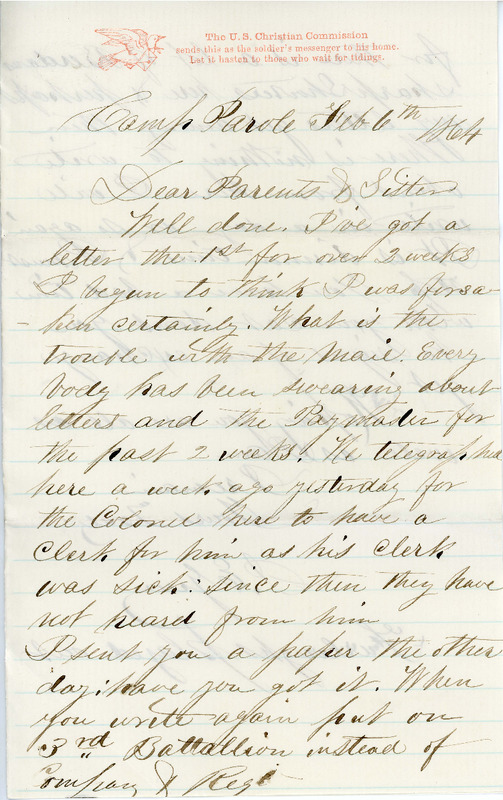 The U. S. Christian Commission
sends this as the soldier's messenger to his home.
Let it hasten to those who wait for tidings.
Camp Parole Feb 6th 1864
Dear Parents & Sister
Well done. I've got a
letter the 1st for over 2 weeks
I begun to think I was forsa
-ken certainly. What is the
trouble with the Mail. Every
body has been swearing about
letters and the Paymaster for
the past 2 weeks. He telegraphed
here a week ago yesterday for
the Colonel here to have a
Clerk for him as his clerk
was sick: since then they have
not heard from him
I sent you a paper the other
day: have you got it. When
you write again put on
3rd Battallion instead of
Company & Regt